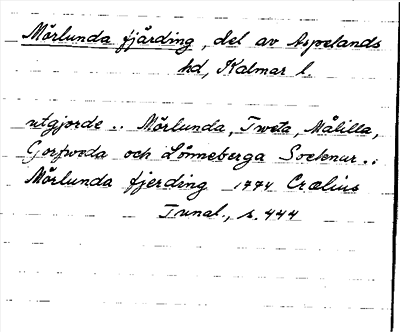 Mörlunda fjärding, del av Aspelands
hd, Kalmar l.
utgjorde .. Mörlunda, Tweta, Målilla,
Gorfweda och Lönneberga Socknar ..
Mörlunda fjerding 1774 Crælius
Tunal., s. 444